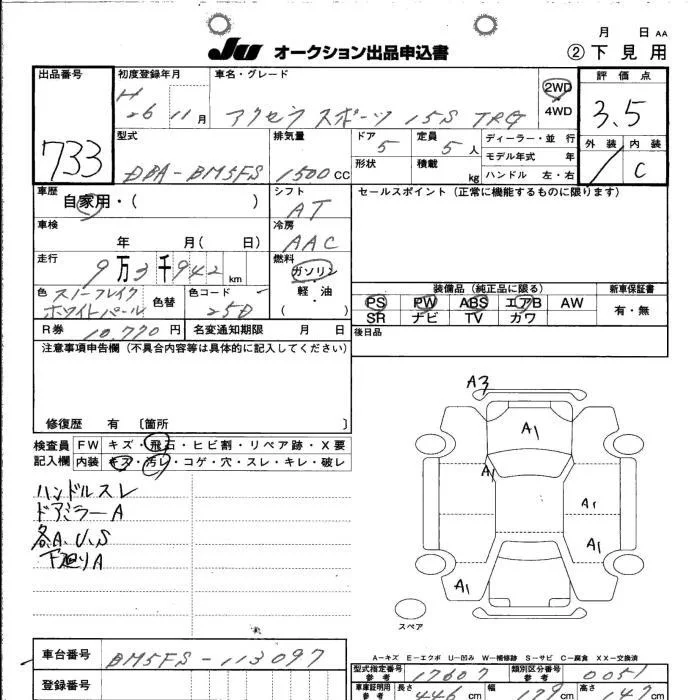 月 日 AA
JU オークション出品申込書 ②下見用
出品番号 初度登録年月 車名・グレード 評価点
733
H 26 11 月
アクセラ スポーツ 15S TRG
2WD
4WD
3.5
型式 排気量 ドア 定員 ディーラー・並行 外装 内装
DBA-BM5FS 1500 CC
5 5 人
モデル年式 年
形状 積載 kg ハンドル 左・右
C
車歴 シフト セールスポイント(正常に機能するものに限ります)
自家用・( )
AT
車検 冷房
年 月( 日)
AAC
走行 燃料
9万3千942 km
ガソリン
軽・油
( )
色 スノーフレイク ホワイトパール 色替 色コード 25D
装備品(純正品に限る) 新車保証書
PS PW ABS エアB AW
SR ナビ TV カワ
有・無
R券 10,770 円 名変通知期限 月 日
後日品
注意事項申告欄(不具合内容等は具体的に記入してください)
修復歴 有 〔箇所 〕
検査員 FW キズ・飛石・ヒビ割・リペア跡・X要
記入欄 内装 キズ・汚レ・コゲ・穴・スレ・キレ・破レ
ハンドルスレ
ドアミラーA
各A.U.S
下廻りA
A3
A1
A1
A1
A1
A1
スペア
A-キズ E-エクボ U-凹み W-補修跡 S-サビ C-腐食 XX-交換済
車台番号 BM5FS-113097
型式指定番号 参考 17607 類別区分番号 参考 0051
登録番号
車庫証明用 参考 長さ 446 cm 幅 179 cm 高さ 147 cm